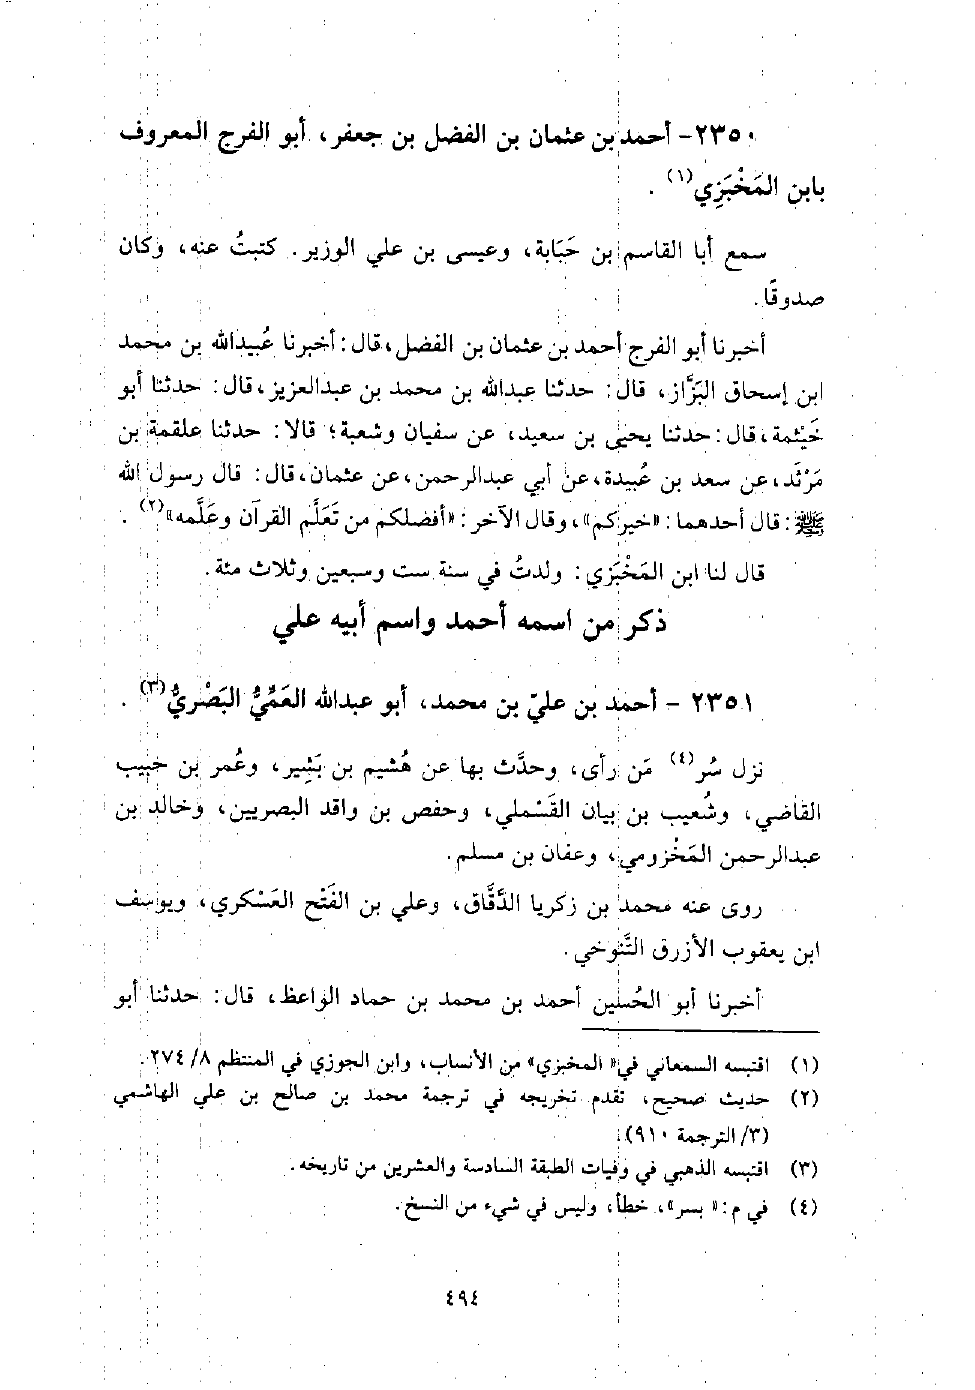 ٢٣٥٠- أحمد بن عثمان بن الفضل بن جعفر، أبو الفرج المعروف
بابن المَخْبَزي(١).
سمع أبا القاسم بن حَبَابة، وعيسى بن علي الوزير. كتبتُ عنه، وكان
صدوقًا.
أخبرنا أبو الفرج أحمد بن عثمان بن الفضل، قال: أخبرنا عُبيدالله بن محمد
ابن إسحاق البَزَّاز، قال: حدثنا عبدالله بن محمد بن عبدالعزيز، قال: حدثنا أبو
خَيْثمة، قال: حدثنا يحيى بن سعيد، عن سفيان وشعبة؛ قالا: حدثنا علقمة بن
مَرْثَد، عن سعد بن عُبيدة، عن أبي عبدالرحمن، عن عثمان، قال: قال رسول الله
ﷺ: قال أحدهما: «خيركم»، وقال الآخر: «أفضلكم من تَعَلَّم القرآن وعَلَّمه»(٢).
قال لنا ابن المَخْبَزي: ولدتُ في سنة ست وسبعين وثلاث مئة.
ذكر من اسمه أحمد واسم أبيه علي
٢٣٥١ - أحمد بن عليّ بن محمد، أبو عبدالله العَمِّيُّ البَصْريُّ(٣).
نزل سُر(٤) مَن رأى، وحدَّث بها عن هُشيم بن بَشير، وعُمر بن حبيب
القاضي، وشُعيب بن بيان القَسْملي، وحفص بن واقد البصريين، وخالد بن
عبدالرحمن المَخْزومي، وعفان بن مسلم.
روى عنه محمد بن زكريا الدَّقَّاق، وعلي بن الفَتْح العَسْكري، ويوسف
ابن يعقوب الأزرق التَّنوخي.
أخبرنا أبو الحُسين أحمد بن محمد بن حماد الواعظ، قال: حدثنا أبو
(١) اقتبسه السمعاني في «المخبزي» من الأنساب، وابن الجوزي في المنتظم ٨/ ٢٧٤.
(٢) حديث صحيح، تقدم تخريجه في ترجمة محمد بن صالح بن علي الهاشمي
(٣/ الترجمة ٩١٠).
(٣) اقتبسه الذهبي في وفيات الطبقة السادسة والعشرين من تاريخه.
(٤) في م: «بسر»، خطأ، وليس في شيء من النسخ.
٤٩٤